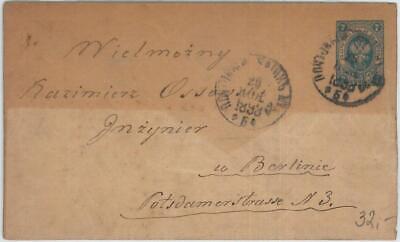 Wielmożny
Kazimierz Ossow
Inżynier
w Berlinie
Potsdamerstrasse N 3.
32,-
7
26
1883